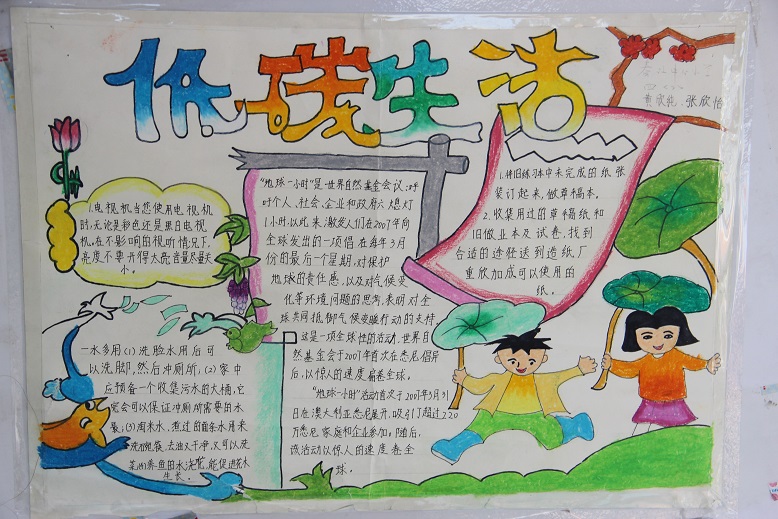 低碳生活
黄欣纯、张欣怡
1.电视机当您使用电视机
时,无论是彩色还是黑白电视
机。在不影响的视听情况下,
亮度不要开得太亮;音量尽量关
小。
"地球一小时"是世界自然基金会议:呼
吁个人、社会、企业和政府六熄灯
1小时,以此来激发人们在2007年向
全球发出的一项倡在每年3月
份的最后一个星期,对保护
地球的责任感,以及对气候变
化等环境问题的思考,表明对全
球共同抵御气候变暖行动的支持
这是一项全球性的活动,世界自
然基金会于2007年首次在悉尼倡导
后,以惊人的速度扁卷全球。
"地球一小时"活动首次于2007年3月31
日在澳大利亚悉尼展开,吸引了超过220
万悉尼家庭和企业参加。随后,
该活动以惊人的速度卷全
球。
1.将旧练习本中未完成的纸张
装订起来,做草稿本。
2.收装用过的草稿纸和
旧做业本及试卷,找到
合适的途径送到造纸厂
重欣加成可以使用的
纸。
一水多用(1)洗脸水用后可
以洗脚,然后冲厕所,(2)家中
应预备一个收集污水的大桶,它
完全可以保证冲厕所需要的水
量;(3)淘米水,煮过的面条水用来
洗碗筷,去油又干净,又可以洗
菜;(4)养鱼的水浇花,能促进花木
生长。